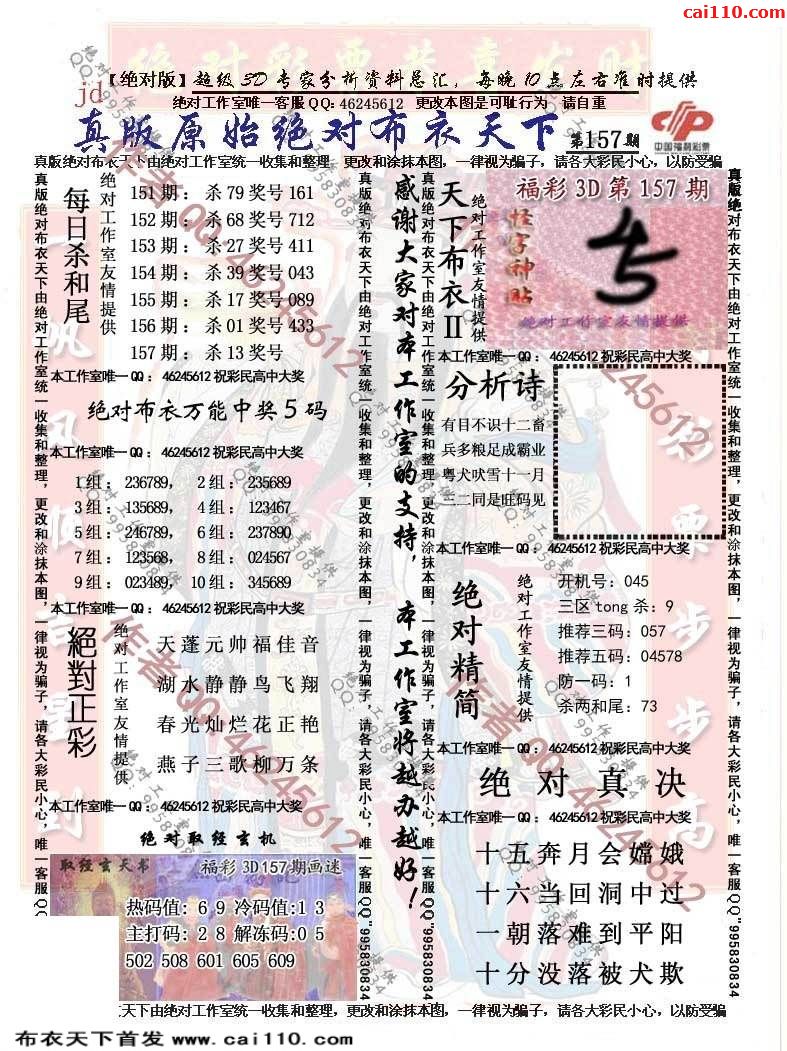 cai110.com
【绝对版】超级3D专家分析资料总汇，每晚10点左右准时提供
jd
绝对工作室唯一客服QQ: 46245612 更改本图是可耻行为 请自重
真版原始绝对布衣天下 第157期
中国福利彩票
真版绝对布衣天下由绝对工作室统一收集和整理，更改和涂抹本图，一律视为骗子，请各大彩民小心，以防受骗
每日杀和尾
绝对工作室友情提供
151期：杀79奖号161
152期：杀68奖号712
153期：杀27奖号411
154期：杀39奖号043
155期：杀17奖号089
156期：杀01奖号433
157期：杀13奖号
本工作室唯一QQ：46245612祝彩民高中大奖
绝对布衣万能中奖5码
本工作室唯一QQ：46245612祝彩民高中大奖
1组：236789， 2组：235689
3组：135689， 4组：123467
5组：246789， 6组：237890
7组：123568， 8组：024567
9组：023489， 10组：345689
本工作室唯一QQ：46245612祝彩民高中大奖
絕對正彩
绝对工作室友情提供
天蓬元帅福佳音
湖水静静鸟飞翔
春光灿烂花正艳
燕子三歌柳万条
本工作室唯一QQ：46245612祝彩民高中大奖
绝对取经玄机
取经玄天书 福彩3D157期画迷
热码值：69冷码值:13
主打码：28解冻码:05
502 508 601 605 609
感谢大家对本工作室的支持，本工作室将越办越好！
天下布衣II
绝对工作室友情提供
福彩3D第157期
怪字神贴
绝对工作室友情提供
本工作室唯一QQ：46245612祝彩民高中大奖
分析诗
有目不识十二畜
兵多粮足成霸业
粤犬吠雪十一月
三二同是旺码见
本工作室唯一QQ：46245612祝彩民高中大奖
绝对精简
绝对工作室友情提供
开机号：045
三区tong杀：9
推荐三码：057
推荐五码：04578
防一码：1
杀两和尾：73
本工作室唯一QQ：46245612祝彩民高中大奖
绝对真决
本工作室唯一QQ：46245612祝彩民高中大奖
十五奔月会嫦娥
十六当回洞中过
一朝落难到平阳
十分没落被犬欺
真版绝对布衣天下由绝对工作室统一收集和整理，更改和涂抹本图，一律视为骗子，请各大彩民小心，唯一客服QQ"995830834
天下由绝对工作室统一收集和整理，更改和涂抹本图，一律视为骗子，请各大彩民小心，以防受骗
布衣天下首发 www.cai110.com